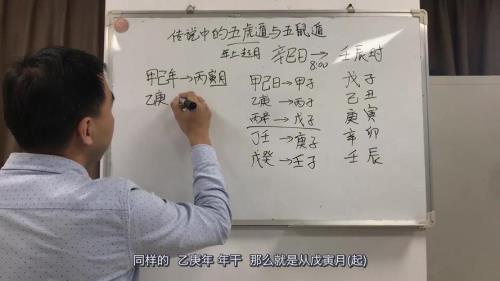 传说中的五虎遁与五鼠遁
年上起月 辛巳日→壬辰时
8:00
甲己年→丙寅月
乙庚
甲己日→甲子
乙庚→丙子
丙辛→戊子
丁壬→庚子
戊癸→壬子
戊子
己丑
庚寅
辛卯
壬辰
同样的 乙庚年 年干 那么就是从戊寅月(起)